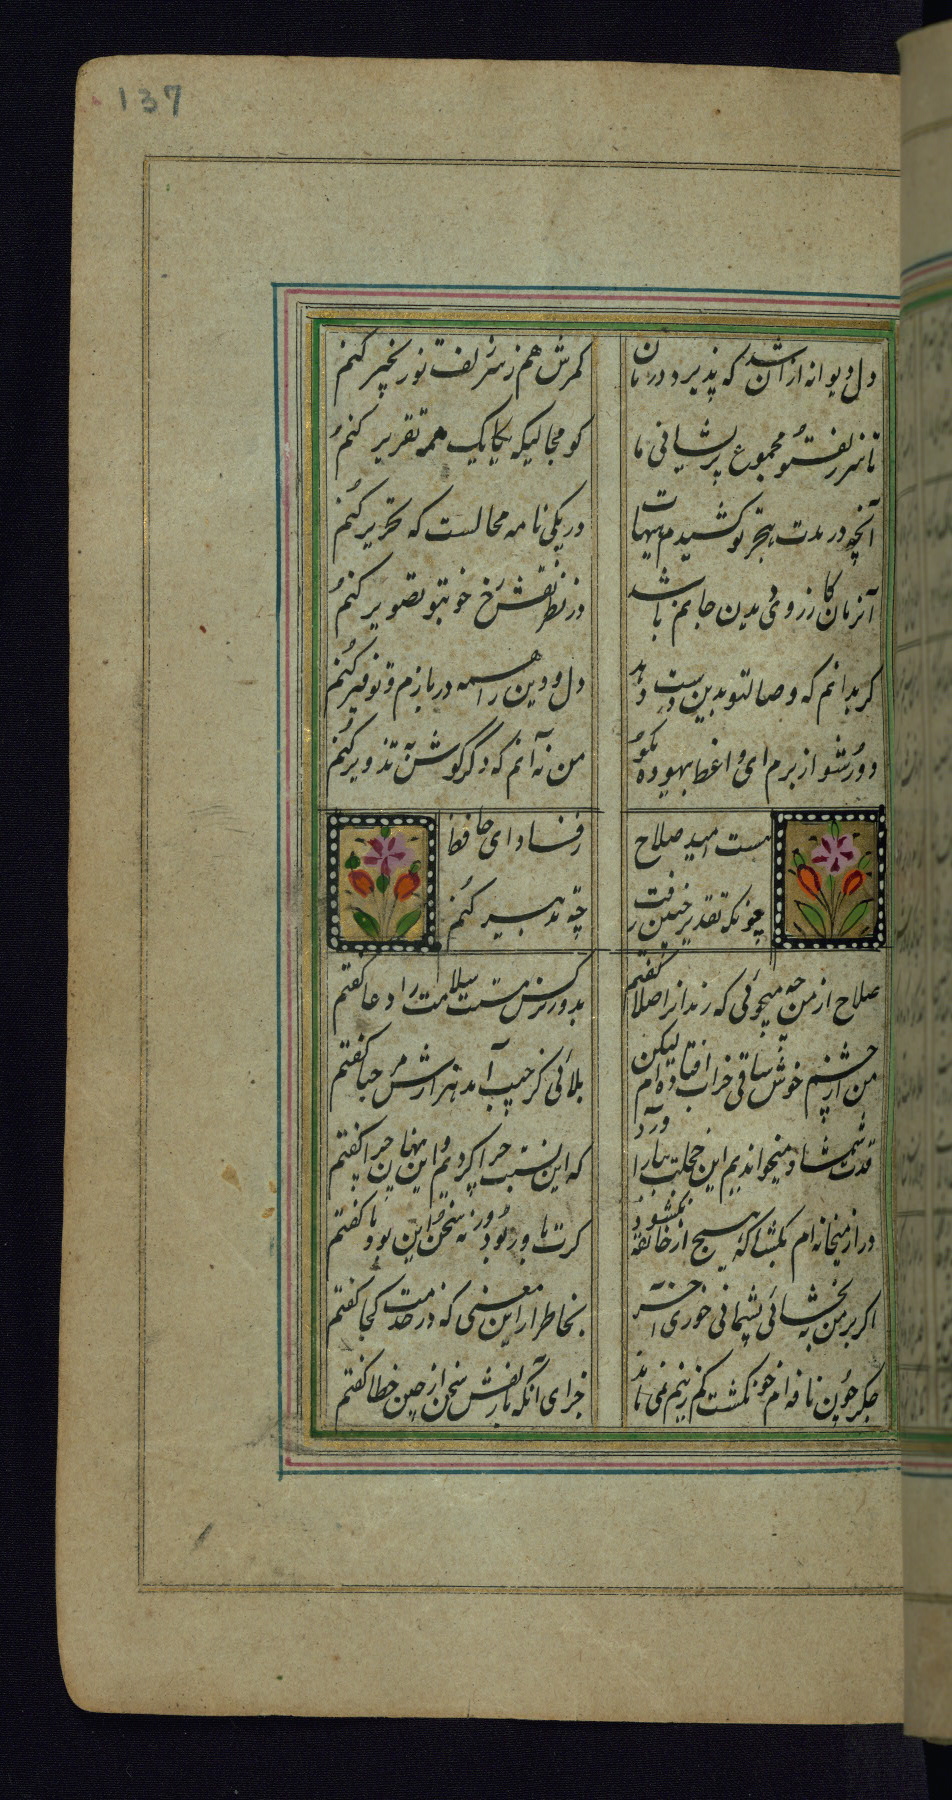 137
دل دیوانه از آن شد که پذیرد درمان
کمرش هم ز سر زلف تو زنجیر کنم
با سر زلف تو مجموع پریشانی ما
کو مجالیکه یکایک همه تقریر کنم
آنچه در مدت هجر تو کشیدم هیهات
در یکی نامه محالست که تحریر کنم
آنزمان کارزوی دیدن جانم باشد
در نظر نقش رخ خوبتو تصویر کنم
گر بدانم که وصالتو بدین دست دهد
دل و دین را همه دربازم و توفیر کنم
دور شو از برم ای واعظ بیهوده مگو
من نه آنم که دگر گوش به تذویر کنم
نیست امید صلاح
ز فساد ای حافظ
چونکه تقدیر چنین رفت
چه تدبیر کنم
صلاح از من چه میجوئی که رندانرا صلا گفتم
بدور نرگس مستت سلامت را دعا گفتم
من از چشم خوش ساقی خراب افتاده‌ام لیکن
بلائی کز حبیب آمد هزارش مرحبا گفتم
قدت شمشاد میخواندیم این خجلت ببار آورد
که این نسبت چرا کردیم و این بهتان چرا گفتم
در از میخانه ام بگشا که هیچ از خانقه نگشود
گرت باور بود ورنه سخن این بود و ما گفتم
اگر بر من نه بخشائی پشیمانی خوری آخر
بخاطر دار این معنی که در خدمت کجا گفتم
جگر چون نافه ام خون گشت کم زینم نمی باید
جزای آنکه با زلفش سخن از چین خطا گفتم